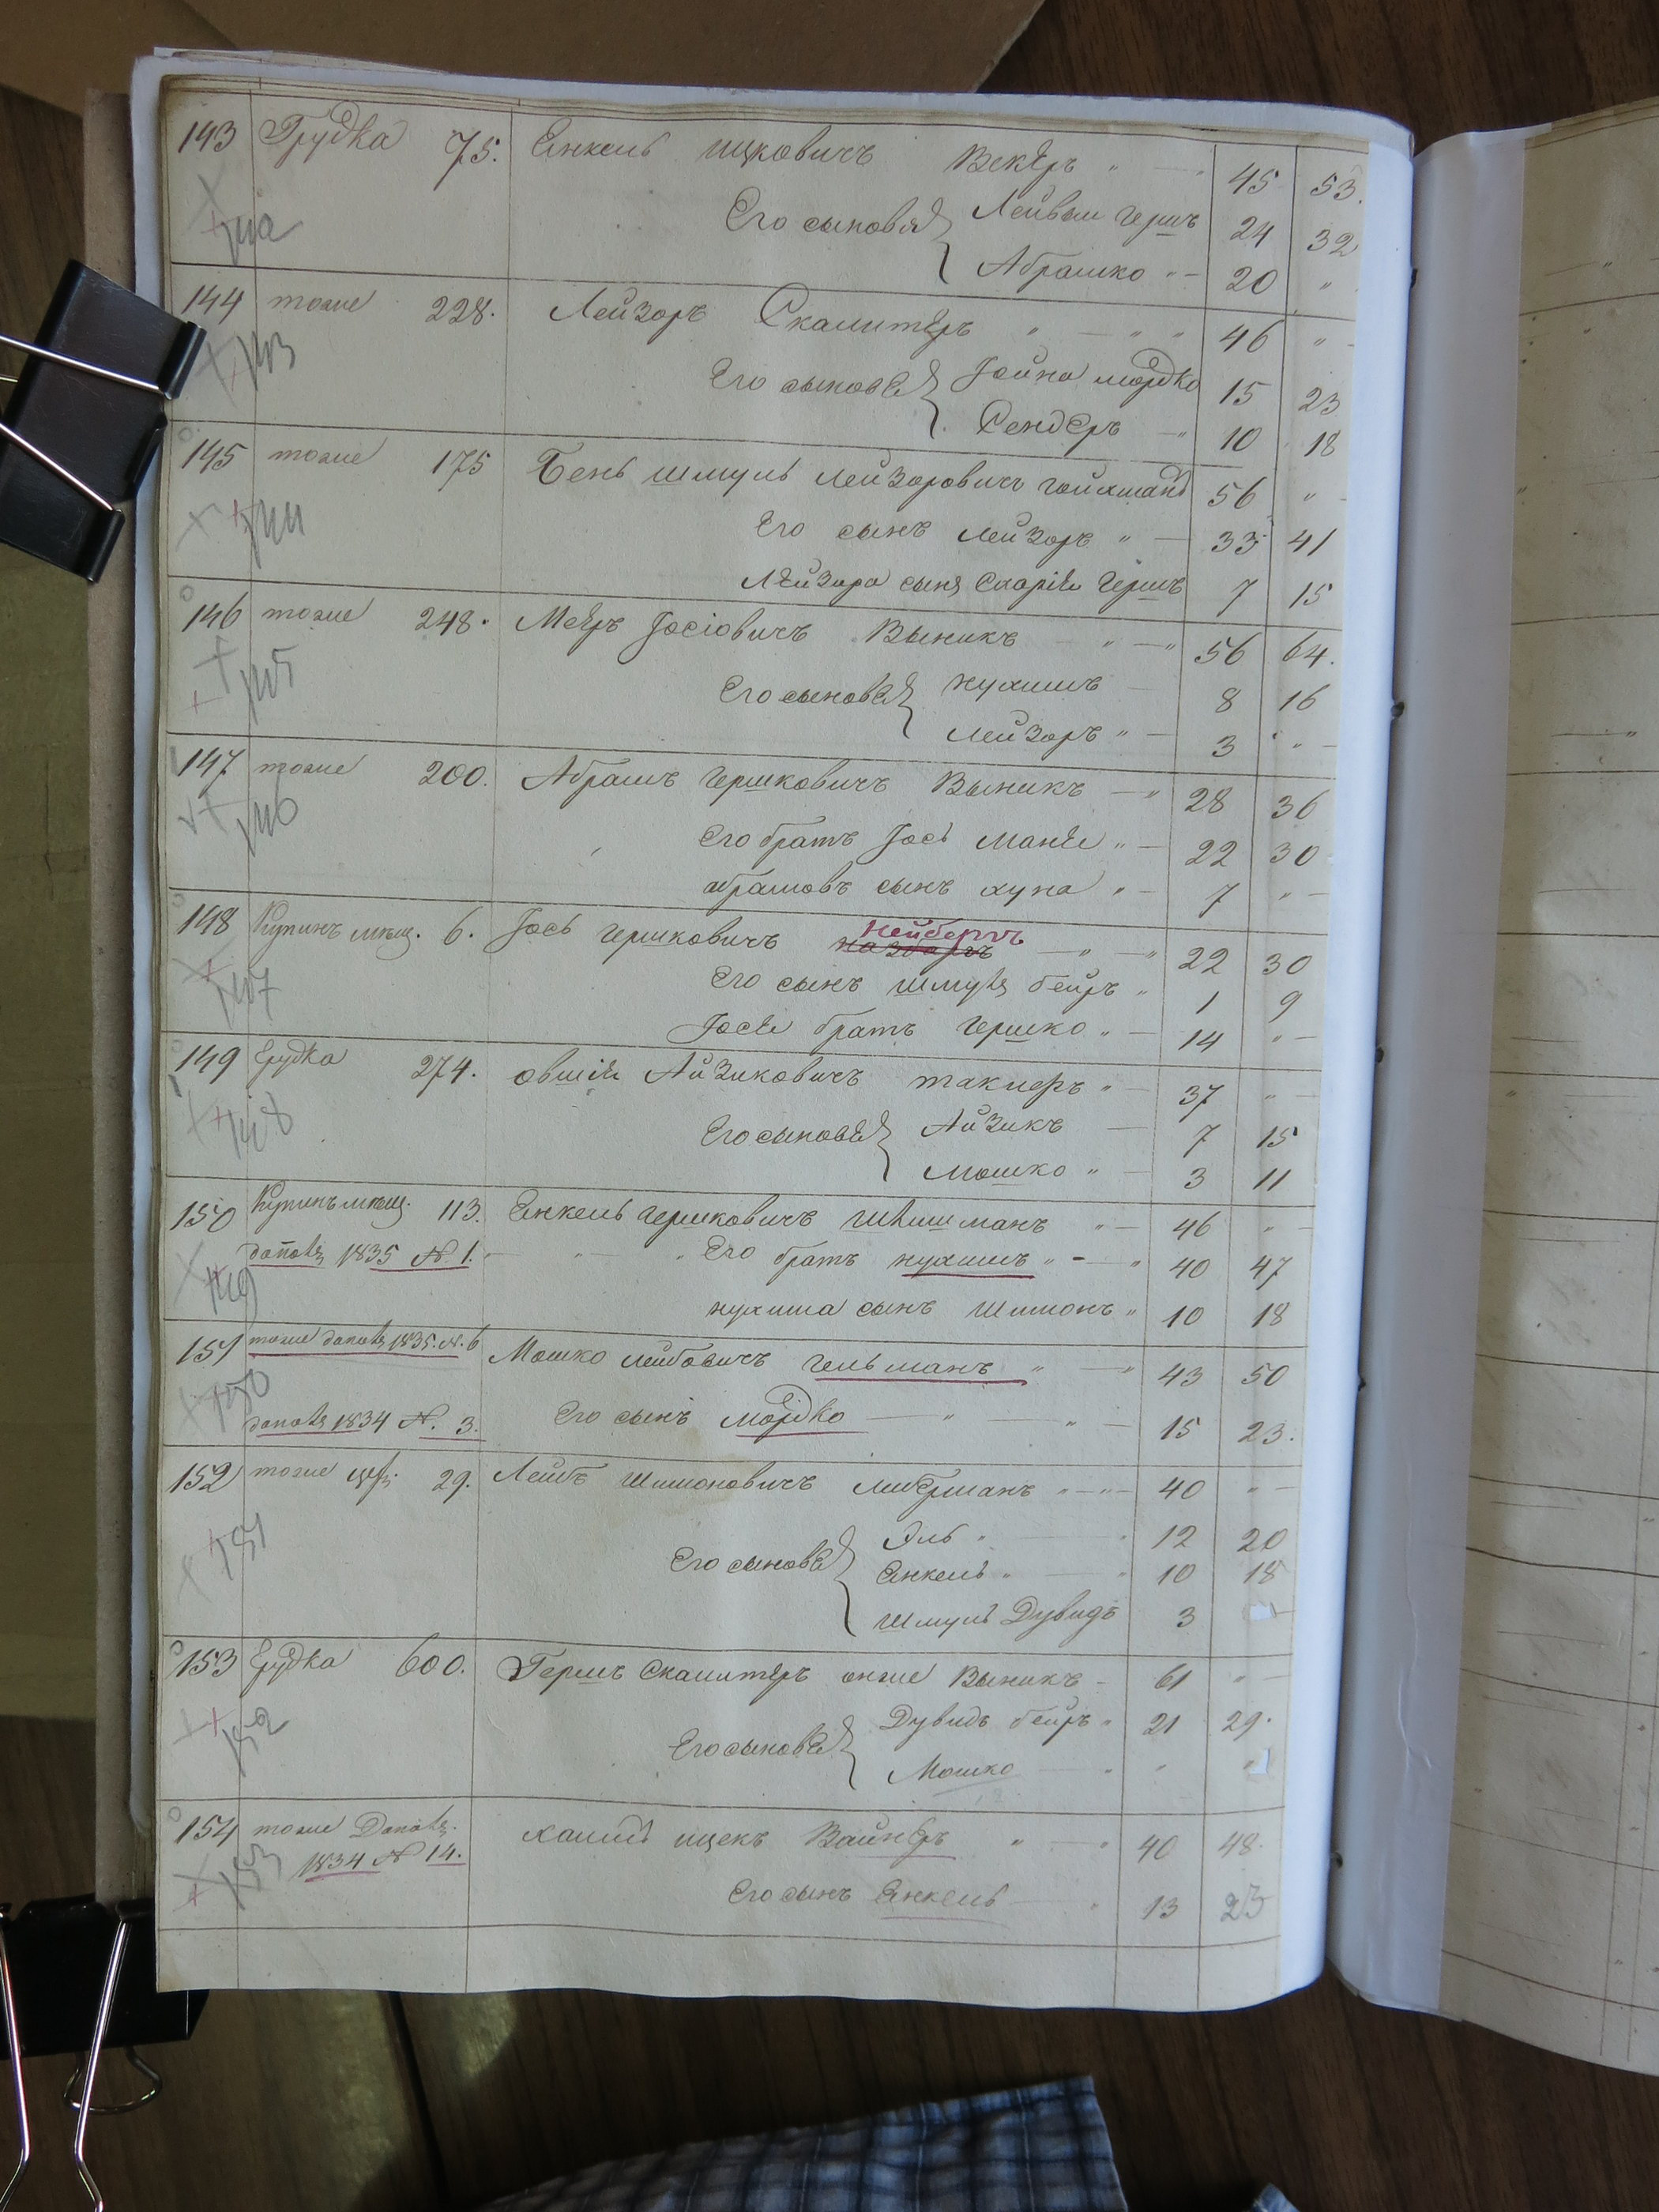 143 Грудка 75. Енкель ицковичъ Векеръ 45 53.
Его сыновья Лейвыш гершъ 24 32
142
Абрашко 20 "
144 тоже 228. Лейзоръ Скамитеръ 46 "
143 Его сыновья Іойна мордко 15 23
Сендеръ 10 18
145 тоже 175 Бень шмуль лейзоровичъ 56 "
144 Его сынъ лейзоръ 33 41
Лейзора сынъ гершъ 7 15
146 тоже 248. Меэръ Іосіовичъ Выникъ 56 64.
145 Его сыновья нухимъ 8 16
Лейзоръ 3 "
147 тоже 200. Абрамъ гершковичъ Выникъ 28 36
146 Его братъ Іось манѣе 22 30
абрамовъ сынъ хуна 7 "
нейбергъ
148 Купинъ мѣщ. 6. Іось гершковичъ 22 30
147 Его сынъ шмуль беиръ 1 9
Іосіе братъ гершко 14 "
149 Грудка 274. овшія Айзиковичъ такиеръ 37 "
148 Его сыновья Айзикъ 7 15
Мошко 3 11
150 Купинъ мѣщ. 113. Енкель гершковичъ 46 "
1835 N 1. Его братъ нухимъ 40 47
149
нухима сынъ Шимонъ 10 18
151 тоже 1835. N. 6 Мошко лейбовичъ гельманъ 43 50
150
1834 N. 3. Его сынъ мордко 15 23.
152 тоже 29. Лейбъ Шимоновичъ либерманъ 40 "
Эль 12 20
151 Его сыновья Енкель 10 18
Шмуль Дувидъ 3
153 Грудка 600. Гершъ Скамитеръ онже Выникъ 61 "
Дувидъ беиръ 21 29.
152 Его сыновья
Мошко " "
154 тоже хаимъ ицекъ Вайнеръ 40 48.
1834 N 14.
153
Его сынъ Енкель 13 23